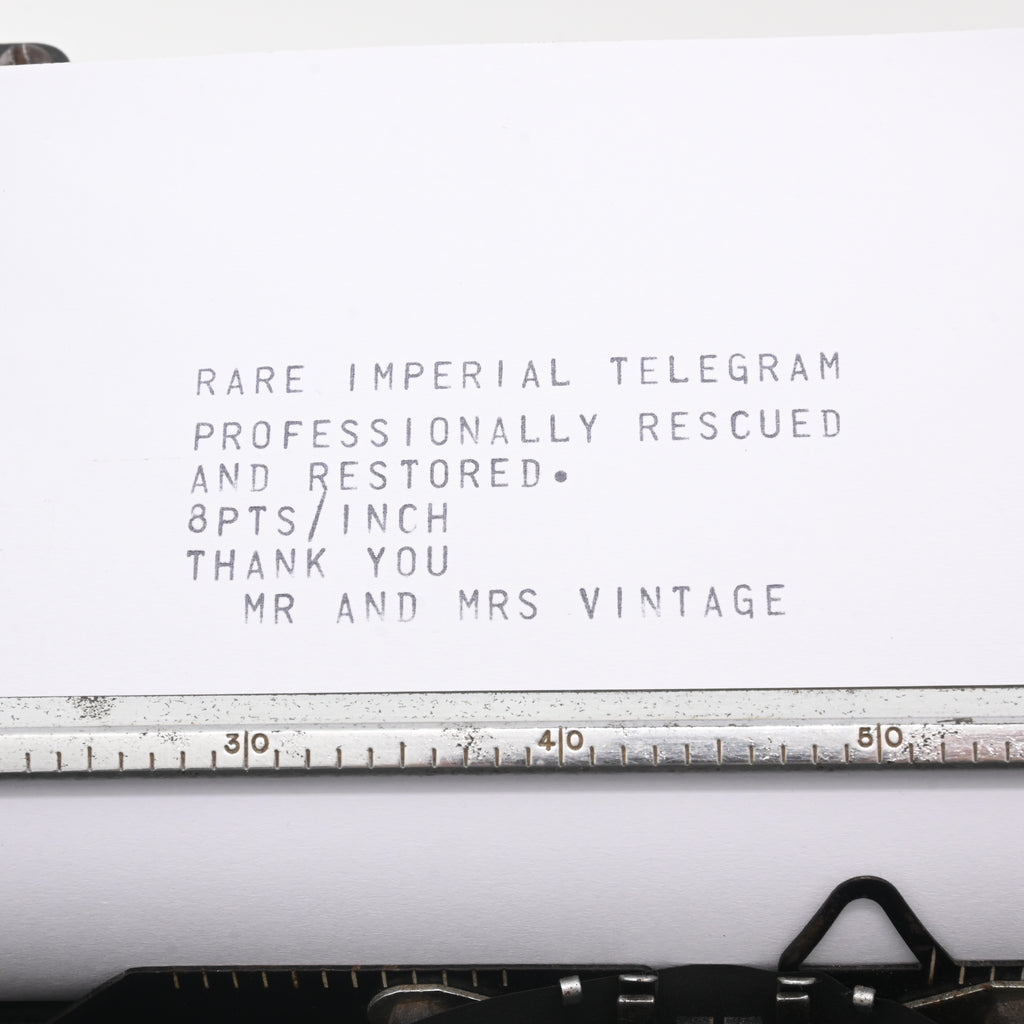 RARE IMPERIAL TELEGRAM
PROFESSIONALLY RESCUED
AND RESTORED.
8PTS/INCH
THANK YOU
MR AND MRS VINTAGE
30 40 50